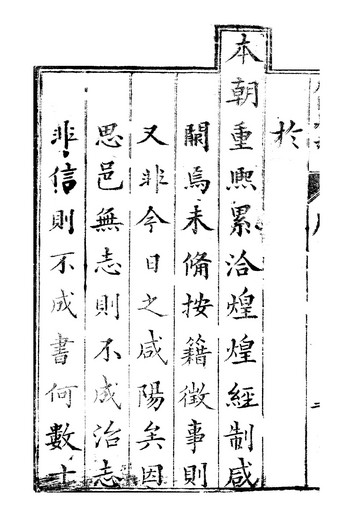 於
本朝重熙累洽煌煌經制咸
闕焉未備按籍徵事則
又非今日之咸陽矣因
思邑無志則不成治志
非信則不成書何數十